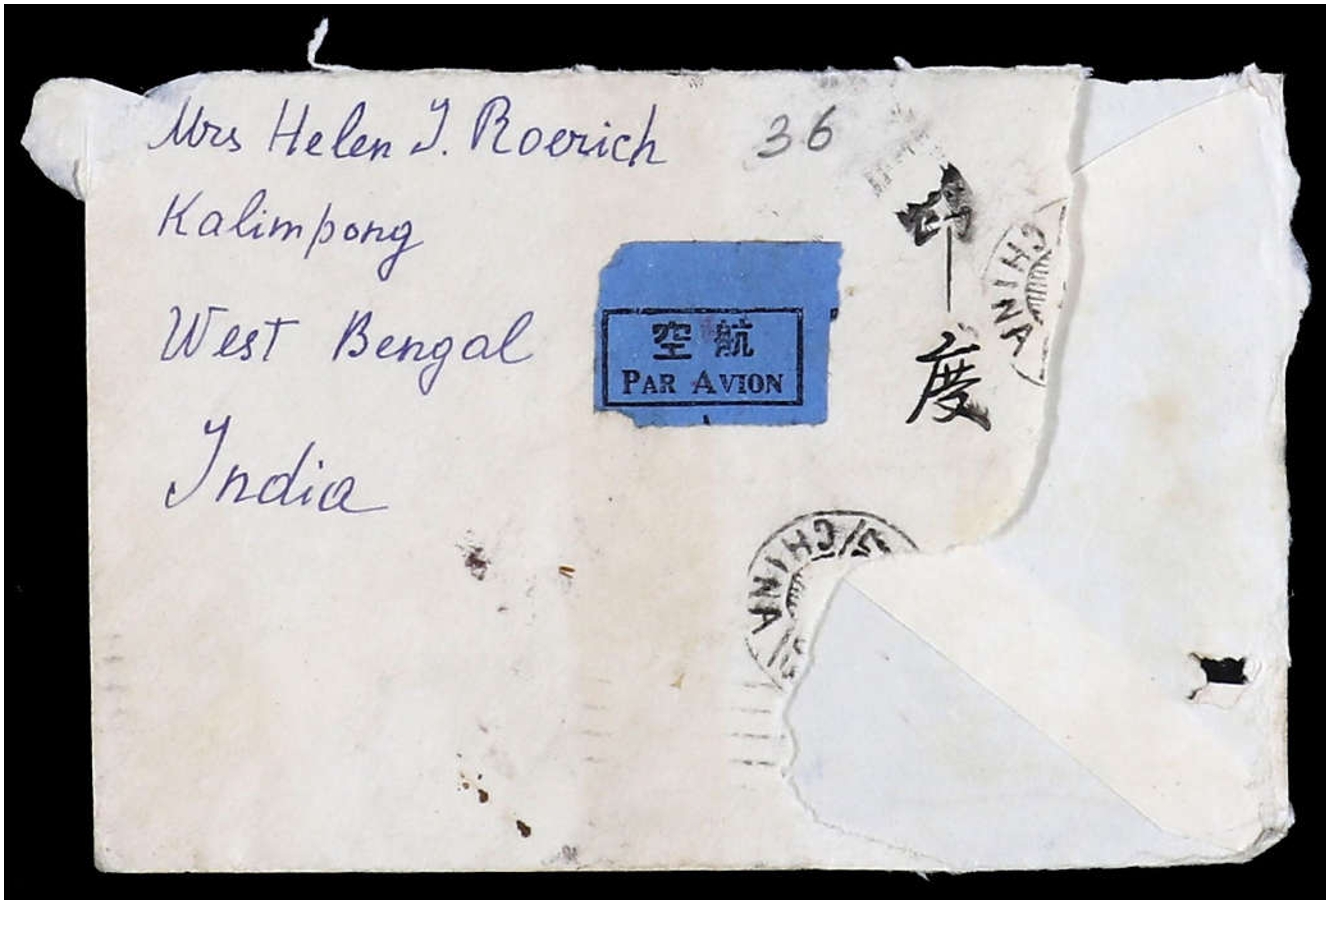 Mrs Helen I. Roerich
36
Kalimpong
West Bengal
India
空航
PAR AVION
印度
CHINA
CHINA